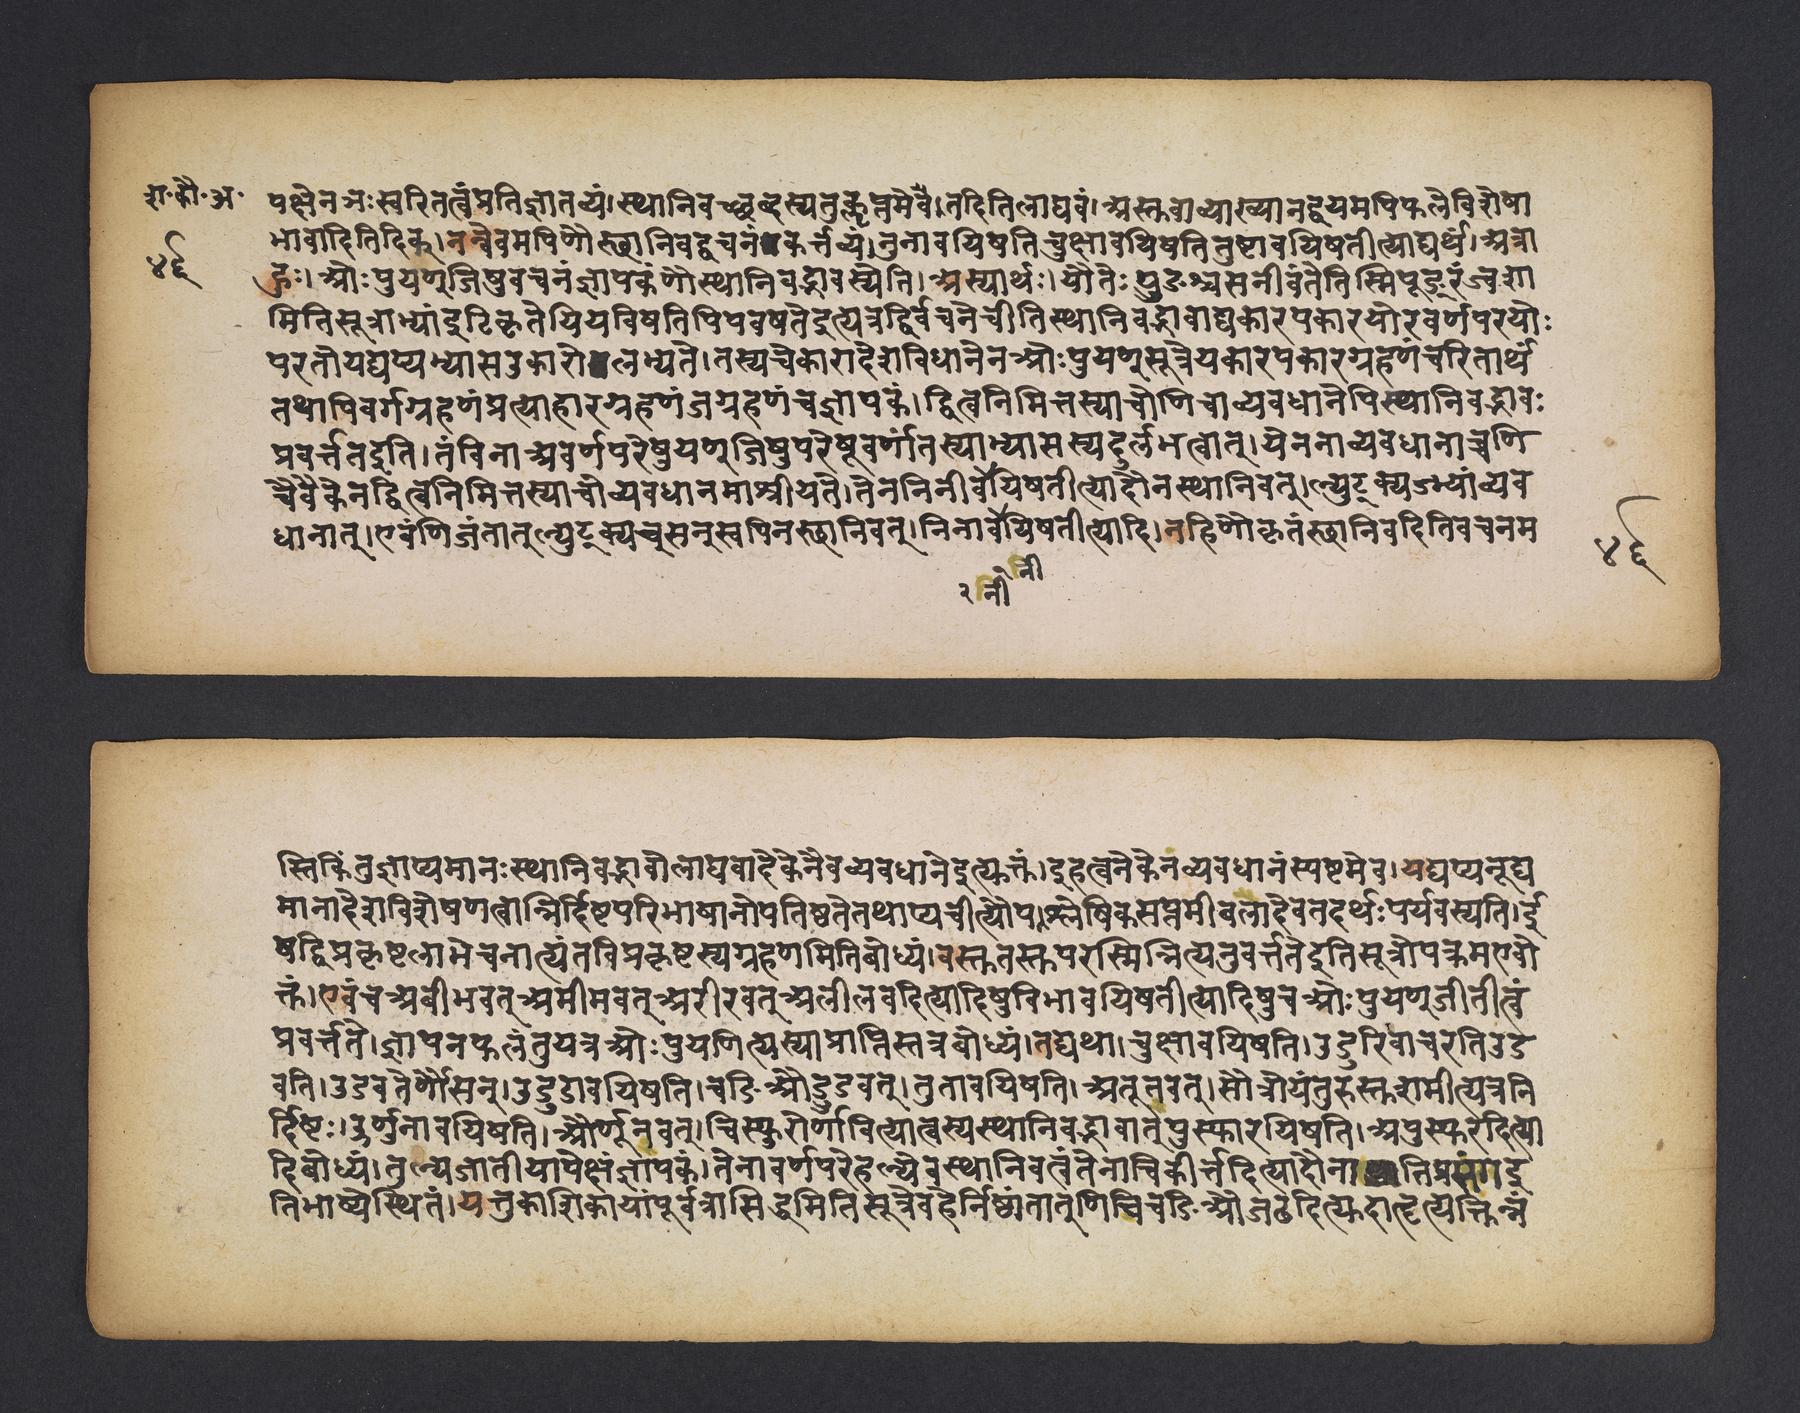 श·कौ·अ·
४६
पक्षेनञः स्वरितत्वं प्रतिज्ञातव्यं। स्थानिवच्छब्दस्यतुक्लृप्तमेवे।तदितिलाघवं।अस्तवाव्याख्यानद्वयमपिफलेविशेषा
भावादितिदिक्।नन्वेवमपिणौस्थानिवद्वचनंकर्त्तव्यं।नुनावयिषतिचुक्षावयिषतितुष्टावयिषतीत्याद्यर्थं।अत्रा
हुः।ओःपुयण्जिषुवचनंज्ञापकंणौस्थानिवद्भावस्येति।अस्यार्थः।यौतेः पुङश्चसनीवंतेतिस्मिपूङ्रंज्वशा
मितिसूत्राभ्यांइटिकृतेयियविषतिपिपवषतेइत्यत्रद्विर्वचनेचीतिस्थानिवद्भावाद्यकारपकारयोरवर्णपरयोः
परतोयद्यप्यभ्यासउकारोलभ्यते।तस्यचैकारादेशविधानेनओःपुयण्सूत्रेयकारपकारग्रहणंचरितार्थं
तथापिवर्गग्रहणंप्रत्याहारग्रहणंजग्रहणंचज्ञापकं।द्वित्वनिमित्तस्याचोणिचाव्यवधानेपिस्थानिवद्भावः
प्रवर्त्ततइति।तंविनाअवर्णपरेषुयण्जिषुपरेषूवर्णांतस्याभ्यासस्यदुर्लभत्वात्।येननाव्यवधानाच्चणि
चैवैकेनद्वित्वनिमित्तस्याचोव्यवधानमाश्रीयते।तेननिनीवेयिषतीत्यादौनस्थानिवत्।ल्युट्क्यज्भ्यांव्यव
धानात्।एवंणिजंतात्ल्युट्क्यच्सन्स्वपिनस्थानिवत्।निनावेयिषतीत्यादि।नहिणौकृतंस्थानिवदितिवचनम
नी
२ नी
४६
स्तिकिंतुज्ञाप्यमानःस्थानिवद्भावोलाघवादेकेनैवव्यवधानेइत्युक्तं।इहत्वनेकेनव्यवधानंस्पष्टमेव।यद्यप्यनूद्य
मानादेशविशेषणत्वान्निर्दिष्टपरिभाषानोपतिष्ठतेतथाप्यचीत्यौपश्लेषिकसप्तमीबलादेवतदर्थःपर्यवस्यति।ई
षद्विप्रकृष्टलाभेचनात्यंतविप्रकृष्टस्यग्रहणमितिबोध्यं।वस्ततस्तपरस्मिन्नित्यनुवर्त्ततेइतिसूत्रोपक्रमएवो
क्तं।एवंचअबीभवत्अमीमवत्अरीरवत्अलीलवदित्यादिषुविभावयिषतीत्यादिषुचओःपुयण्जीतीत्वं
प्रवर्त्तते।ज्ञापनफलंतुयत्रओःपुयणित्यस्याप्राप्तिस्तत्रबोध्यं।तद्यथा।चुक्षावयिषति।उडुरिवाचरतिउड
वति।उडवतेर्णौसन्।उडुडावयिषति।चङिऔडुडवत्।तुतावयिषति।अतूतवत्।सौत्रोयंतुरुस्तशमीत्यत्रनि
र्दिष्टः।ऊर्णुनावयिषति।और्णूनवत्।चिस्फुरोर्णावित्यात्वस्यस्थानिवद्भावात्पुस्फारयिषति।अपुस्फरदित्या
दिबोध्यं।तुल्यजातीयापेक्षंज्ञापकं।तेनावर्णपरेहल्येवस्थानिवत्वंतेनाचिकीर्त्तदित्यादौनातिप्रसंगइ
तिभाष्येस्थितं।यत्तुकाशिकायांपूर्वत्रासिद्धमितिसूत्रेवहेर्निष्ठांतात्णिचिचङिऔजढदित्युदाहृत्योक्तिन्नं